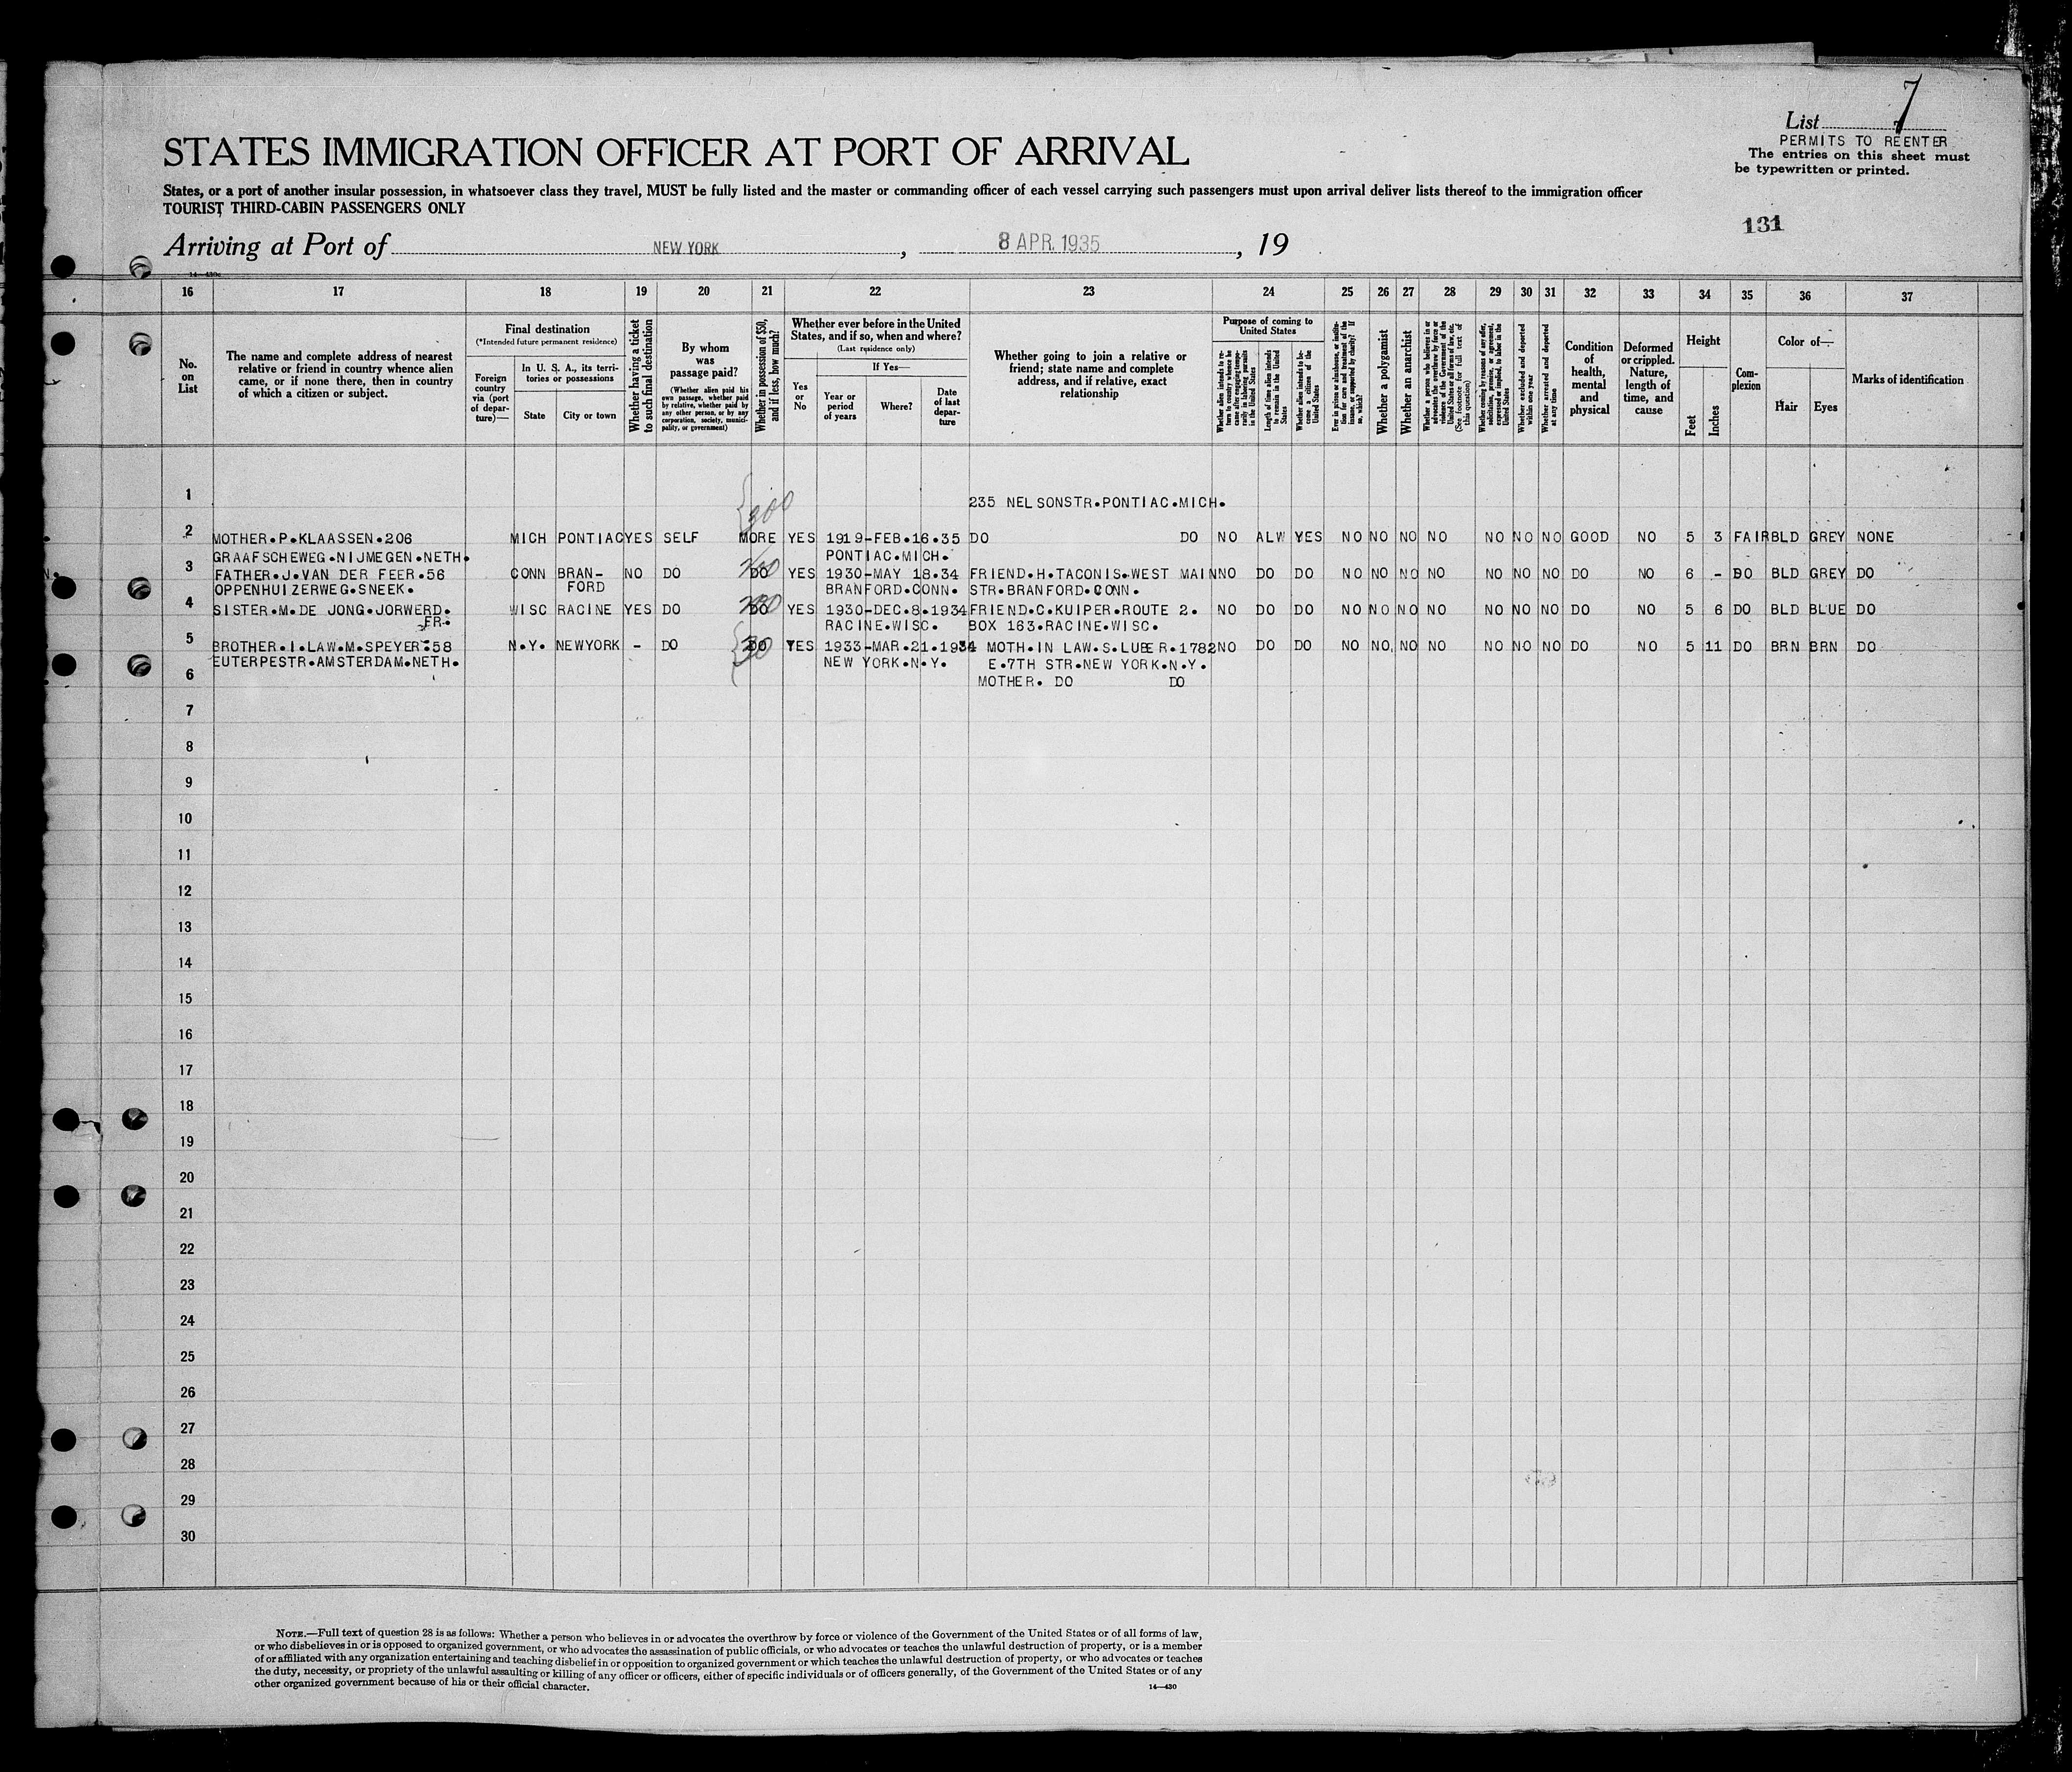 7
List
PERMITS TO REENTER
The entries on this sheet must
be typewritten or printed.
131
STATES IMMIGRATION OFFICER AT PORT OF ARRIVAL
States, or a port of another insular possession, in whatsoever class they travel, MUST be fully listed and the master or commanding officer of each vessel carrying such passengers must upon arrival deliver lists thereof to the immigration officer
TOURIST THIRD-CABIN PASSENGERS ONLY
Arriving at Port of NEW YORK, 8 APR. 1935, 19
14—430c
16 17 18 19 20 21 22 23 24 25 26 27 28 29 30 31 32 33 34 35 36 37
No. on List
The name and complete address of nearest relative or friend in country whence alien came, or if none there, then in country of which a citizen or subject.
Final destination
(*Intended future permanent residence)
Foreign country via (port of departure)—
In U. S. A., its territories or possessions
State
City or town
Whether having a ticket to such final destination
By whom was passage paid?
(Whether alien paid his own passage, whether paid by relative, whether paid by any other person, or by any corporation, society, municipality, or government)
Whether in possession of $50, and if less, how much?
Whether ever before in the United States, and if so, when and where?
(Last residence only)
Yes or No
If Yes—
Year or period of years
Where?
Date of last departure
Whether going to join a relative or friend; state name and complete address, and if relative, exact relationship
Purpose of coming to United States
Whether alien intends to return to country whence he came after engaging temporarily in laboring pursuits in the United States
Length of time alien intends to remain in the United States
Whether alien intends to become a citizen of the United States
Ever in prison or almshouse, or institution for care and treatment of the insane, or supported by charity? If so, which?
Whether a polygamist
Whether an anarchist
Whether a person who believes in or advocates the overthrow by force or violence of the Government of the United States or all forms of law, etc. (See footnote for full text of this question)
Whether coming by reasons of any offer, solicitation, promise, or agreement, expressed or implied, to labor in the United States
Whether excluded and deported within one year
Whether arrested and deported at any time
Condition of health, mental and physical
Deformed or crippled. Nature, length of time, and cause
Height
Feet
Inches
Complexion
Color of—
Hair
Eyes
Marks of identification
1 300 235 NELSONSTR.PONTIAC.MICH.
2 MOTHER.P.KLAASSEN.206 MICH PONTIAC YES SELF MORE YES 1919-FEB.16.35 DO DO NO ALW YES NO NO NO NO NO NO NO GOOD NO 5 3 FAIR BLD GREY NONE
GRAAFSCHEWEG.NIJMEGEN.NETH. PONTIAC.MICH.
3 FATHER.J.VAN DER FEER.56 CONN BRAN- NO DO DO YES 1930-MAY 18.34 FRIEND.H.TACONIS.WEST MAIN NO DO DO NO NO NO NO NO NO NO DO NO 6 - DO BLD GREY DO
OPPENHUIZERWEG.SNEEK. FORD BRANFORD.CONN. STR.BRANFORD.CONN.
4 SISTER.M.DE JONG.JORWERD. WISC RACINE YES DO DO YES 1930-DEC.8.1934 FRIEND.C.KUIPER.ROUTE 2. NO DO DO NO NO NO NO NO NO NO DO NO 5 6 DO BLD BLUE DO
FR. RACINE.WISC. BOX 163.RACINE.WISC.
5 BROTHER.I.LAW.M.SPEYER.58 N.Y. NEWYORK - DO DO 30 YES 1933-MAR.21.1934 MOTH.IN LAW.S.LUBER.1782 NO DO DO NO NO NO NO NO NO NO DO NO 5 11 DO BRN BRN DO
EUTERPESTR.AMSTERDAM.NETH. NEW YORK.N.Y. E.7TH STR.NEW YORK.N.Y.
6 MOTHER. DO DO
7
8
9
10
11
12
13
14
15
16
17
18
19
20
21
22
23
24
25
26
27
28
29
30
NOTE.—Full text of question 28 is as follows: Whether a person who believes in or advocates the overthrow by force or violence of the Government of the United States or of all forms of law,
or who disbelieves in or is opposed to organized government, or who advocates the assassination of public officials, or who advocates or teaches the unlawful destruction of property, or is a member
of or affiliated with any organization entertaining and teaching disbelief in or opposition to organized government or which teaches the unlawful destruction of property, or who advocates or teaches
the duty, necessity, or propriety of the unlawful assaulting or killing of any officer or officers, either of specific individuals or of officers generally, of the Government of the United States or of any
other organized government because of his or their official character.
14—430